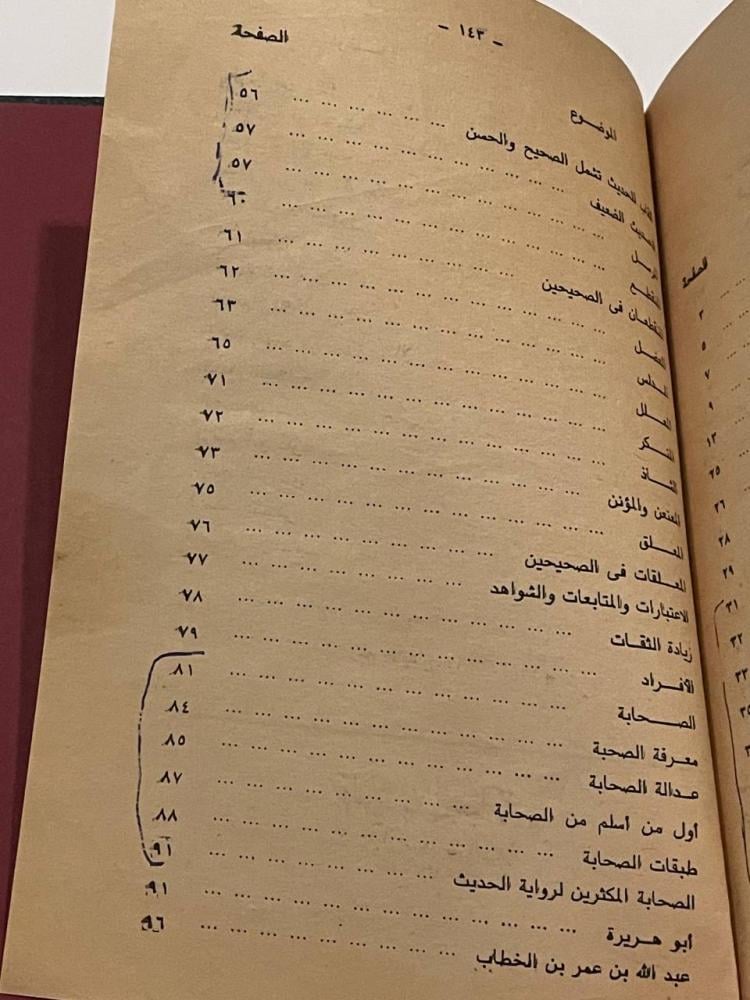 الصفحة
٣
٥
٧
٩
١٣
٢٥
٢٦
٢٨
٢٩
٣١
٣٢
٣٣
– ١٤٣ –
الموضوع الصفحة
للحديث تشمل الصحيح والحسن ... ... ... ... ... ٥٦
الحديث الضعيف ... ... ... ... ... ... ... ... ٥٧
المرسل ... ... ... ... ... ... ... ... ... ٥٧
المنقطع ... ... ... ... ... ... ... ... ... ٦٠
فى الصحيحين ... ... ... ... ... ... ... ٦١
المعضل ... ... ... ... ... ... ... ... ... ٦٢
المدلس ... ... ... ... ... ... ... ... ... ٦٣
المعلل ... ... ... ... ... ... ... ... ... ٦٥
المنكر ... ... ... ... ... ... ... ... ... ٧١
الشاذ ... ... ... ... ... ... ... ... ... ٧٢
المعنعن والمؤنن ... ... ... ... ... ... ... ... ٧٣
المعلق ... ... ... ... ... ... ... ... ... ٧٥
المعلقات فى الصحيحين ... ... ... ... ... ... ... ٧٦
الاعتبارات والمتابعات والشواهد ... ... ... ... ... ... ٧٧
زيادة الثقات ... ... ... ... ... ... ... ... ٧٨
الأفراد ... ... ... ... ... ... ... ... ... ٧٩
الصحابة ... ... ... ... ... ... ... ... ... ٨١
معرفة الصحبة ... ... ... ... ... ... ... ... ٨٤
عدالة الصحابة ... ... ... ... ... ... ... ... ٨٥
أول من أسلم من الصحابة ... ... ... ... ... ... ٨٧
طبقات الصحابة ... ... ... ... ... ... ... ... ٨٨
الصحابة المكثرين لرواية الحديث ... ... ... ... ... ٩١
أبو هريرة ... ... ... ... ... ... ... ... ... ٩١
عبد الله بن عمر بن الخطاب ... ... ... ... ... ... ٩٦